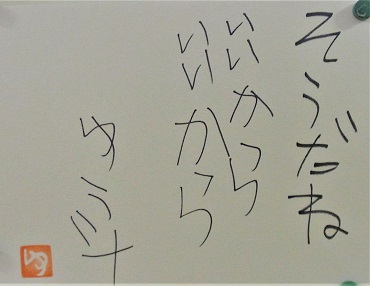 そうだね
いいから
いいから
ゆう斗
ゆ